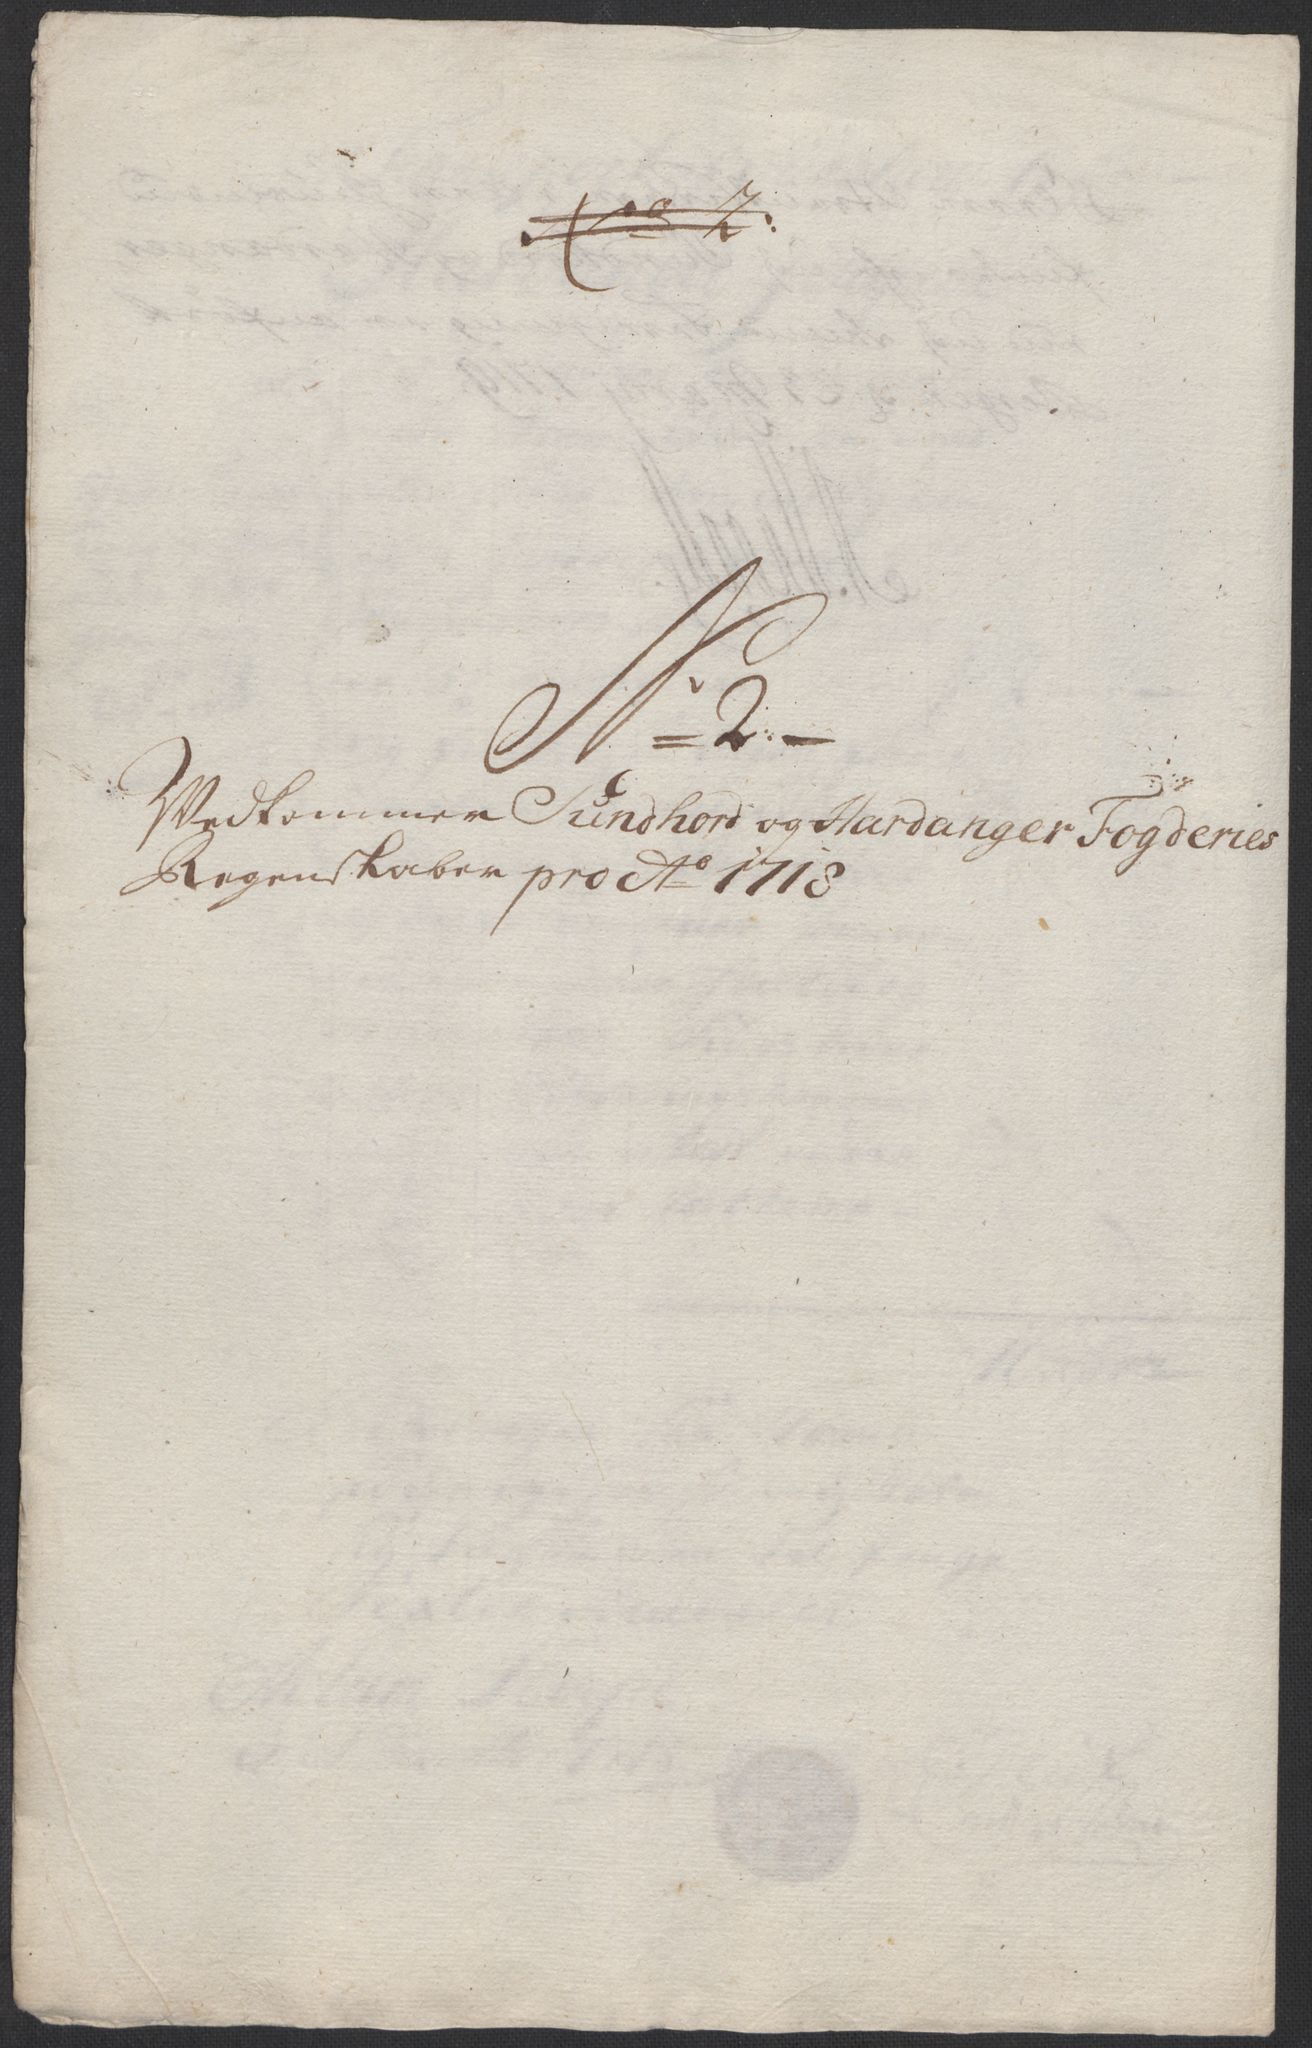 No 2:
No 2:
Vedkommer Sundhord og Hardanger Fogderies
Regenskaber pro Ao 1718